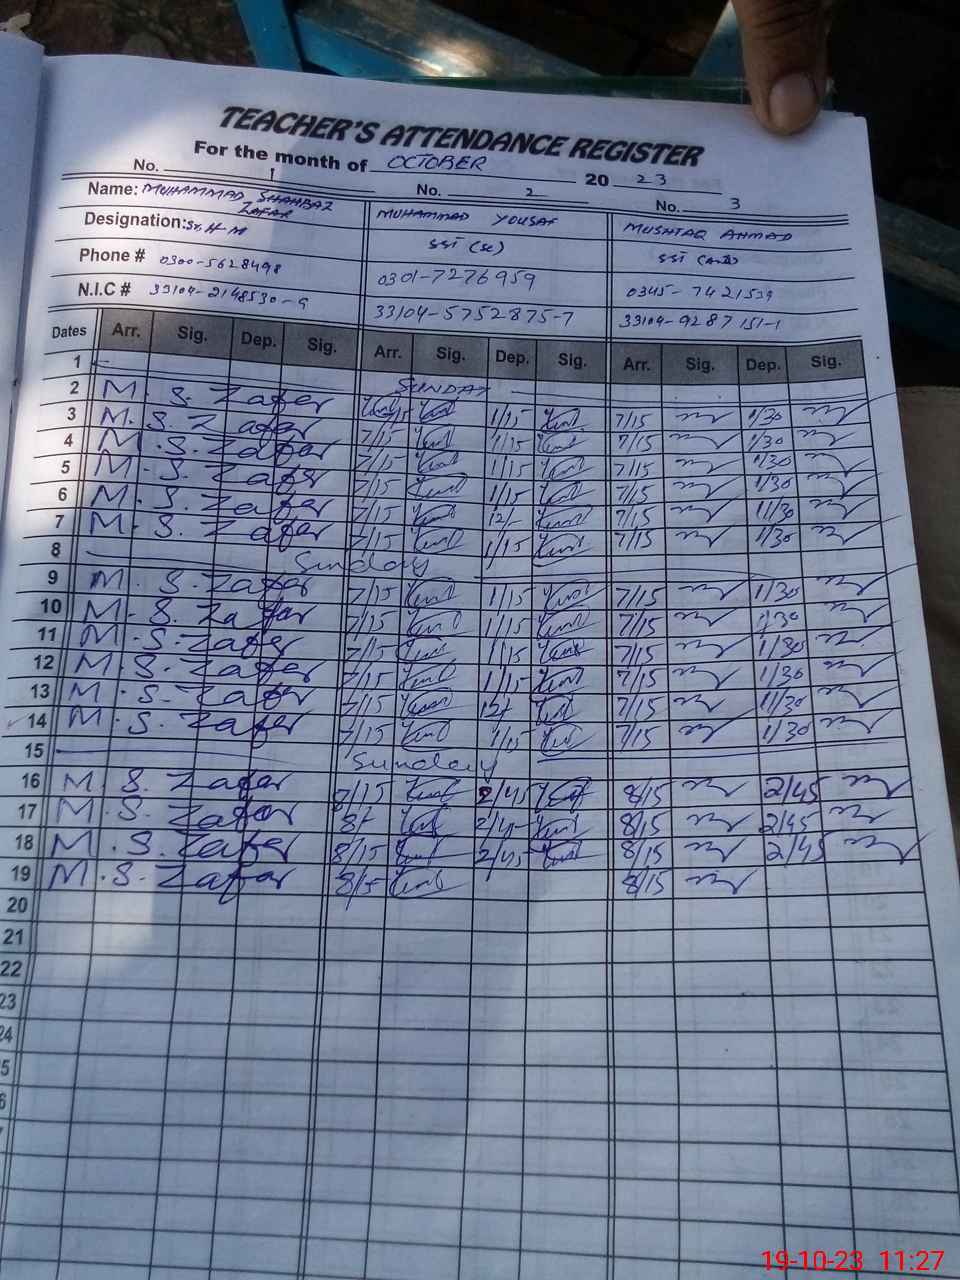 TEACHER'S ATTENDANCE REGISTER
For the month of OCTOBER 20 23
No. 1 No. 2 No. 3
Name: MUHAMMAD SHAHBAZ ZAFAR MUHAMMAD YOUSAF MUSHTAQ AHMAD
Designation: Sr. H M SST (Sc) SST
Phone # 0300-5628498 0301-7276959 0345-7421539
N.I.C # 33104-2148530-9 33104-5752875-7 33104-9287151-1
Dates Arr. Sig. Dep. Sig. Arr. Sig. Dep. Sig. Arr. Sig. Dep. Sig.
1 SUNDAY
2 M. S. Zafar 7/15 1/15 7/15 1/30
3 M. S. Zafar 7/15 1/15 7/15 1/30
4 M. S. Zafar 7/15 1/15 7/15 1/30
5 M. S. Zafar 7/15 1/15 7/15 1/30
6 M. S. Zafar 7/15 12/- 7/15 11/30
7 M. S. Zafar 7/15 1/15 7/15 1/30
8 Sunday
9 M. S. Zafar 7/15 1/15 7/15 1/30
10 M. S. Zafar 7/15 1/15 7/15 1/30
11 M. S. Zafar 7/15 1/15 7/15 1/30
12 M. S. Zafar 7/15 1/15 7/15 1/30
13 M. S. Zafar 7/15 12/- 7/15 11/30
14 M. S. Zafar 7/15 1/15 7/15 1/30
15 Sunday
16 M. S. Zafar 2/45 8/15 2/45
17 M. S. Zafar 8/- 2/45 8/15 2/45
18 M. S. Zafar 8/15 2/45 8/15 2/45
19 M. S. Zafar 8/- 8/15
20
21
22
23
24
19-10-23 11:27